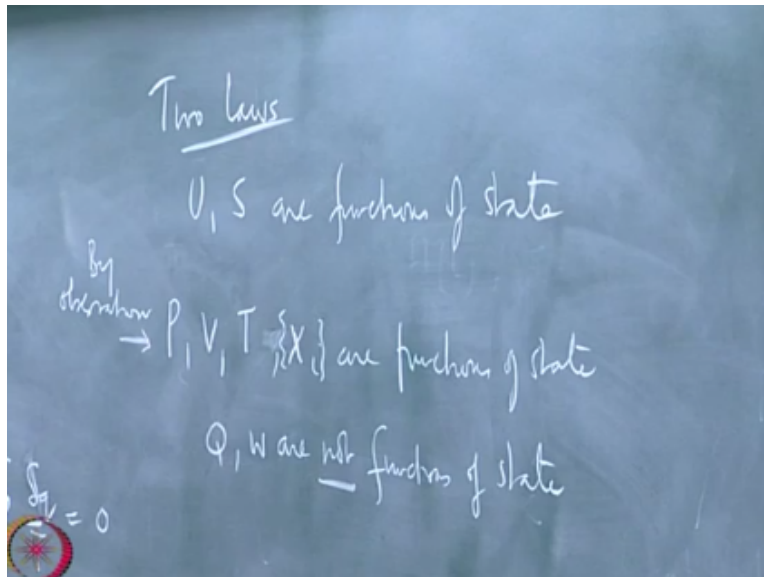 Two Laws
U, S are functions of state
By
observation
→ P, V, T, {X,} are functions of state
Q, W are not functions of state
= 0